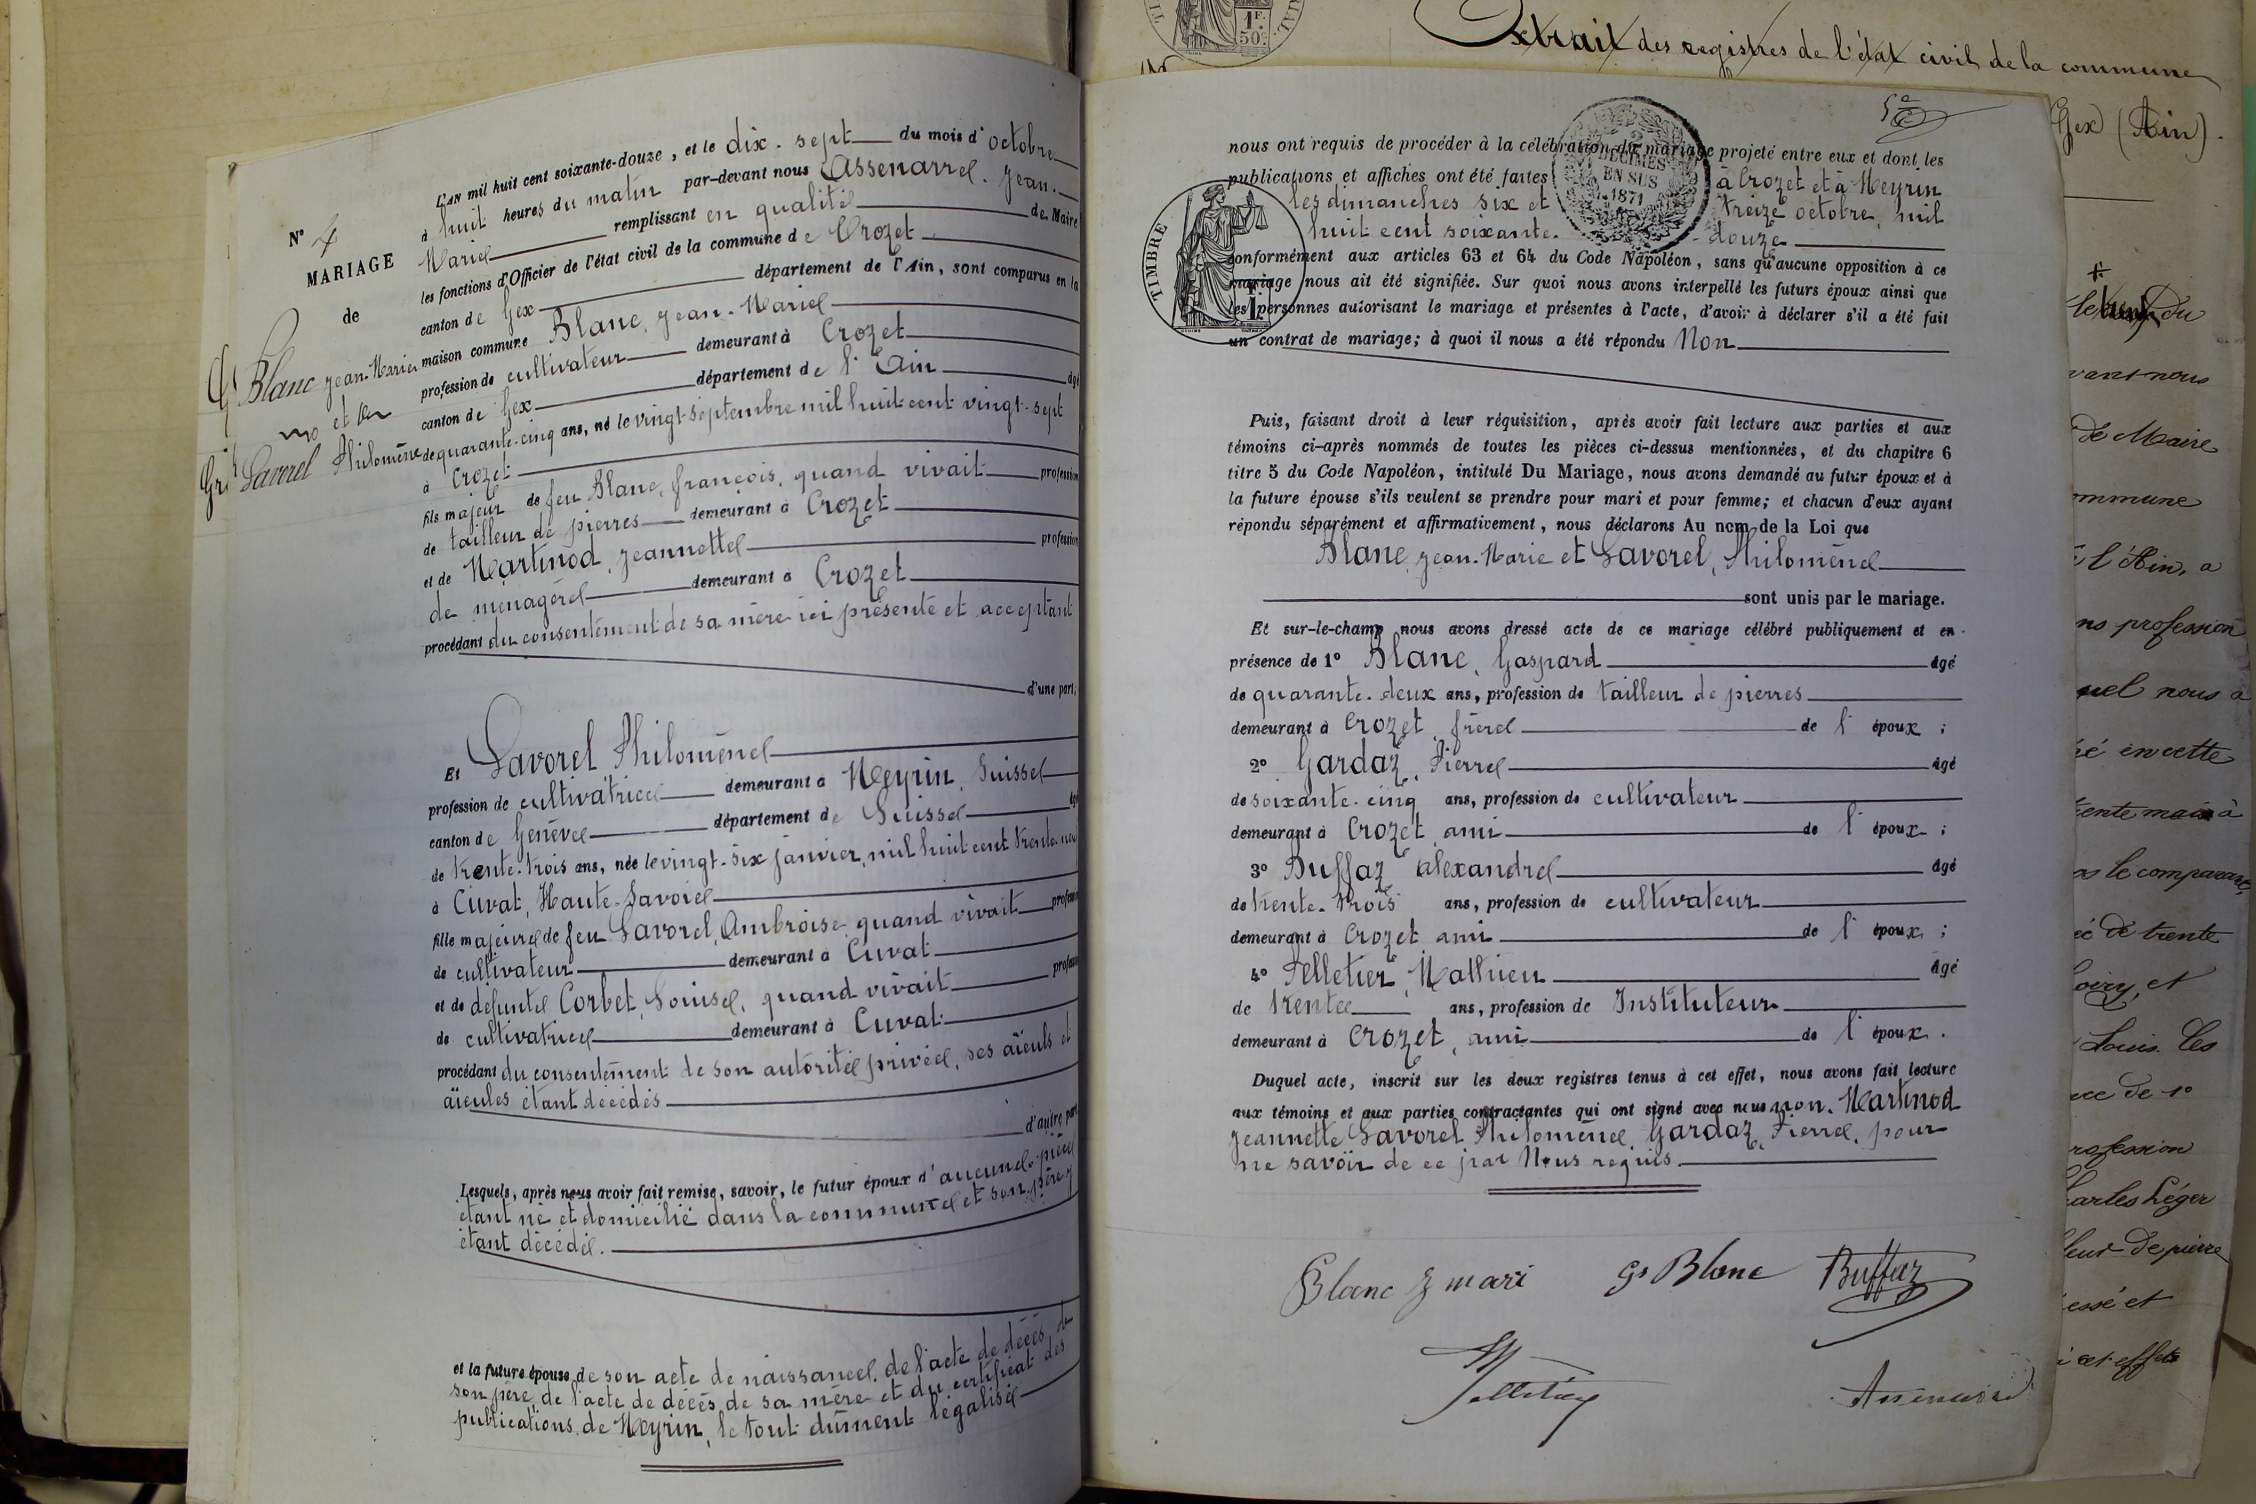 L'AN mil huit cent soixante-douze, et le dix-sept du mois d'octobre
à huit heures du matin par-devant nous Assenarrel. Jean.
Marie remplissant en qualité de Maire
les fonctions d'Officier de l'état civil de la commune de Crozet
canton de Gex département de l'Ain, sont comparus en la
maison commune Blanc, Jean-Marie
profession de cultivateur demeurant à Crozet
canton de Gex département de l'Ain âgé
de quarante-cinq ans, né le vingt septembre mil huit cent vingt-sept
à Crozet
fils majeur de feu Blanc, François, quand vivait profession
de tailleur de pierres demeurant à Crozet
et de Martinod, Jeannette profession
de ménagère demeurant à Crozet
procédant du consentement de sa mère ici présente et acceptant
d'une part;
N° 4
MARIAGE
de
Blanc Jean-Marie
et
Lavorel Philomène
Et Lavorel Philomène
profession de cultivatrice demeurant à Meyrin, Suisse
canton de Genève département de Suisse âgé
de trente-trois ans, née le vingt-six janvier, mil huit cent trente-neuf
à Cuvat, Haute-Savoie
fille majeure de feu Lavorel, Ambroise, quand vivait profession
de cultivateur demeurant à Cuvat
et de défunte Corbet, Louise, quand vivait profession
de cultivatrice demeurant à Cuvat
procédant du consentement de son autorité privée, ses aïeuls et
aïeules étant décédés
d'autre part
Lesquels, après nous avoir fait remise, savoir, le futur époux d'aucune pièce
étant né et domicilié dans la commune et son père y
étant décédé.
et la future épouse de son acte de naissance, de l'acte de décès de
son père, de l'acte de décès de sa mère et du certificat des
publications de Meyrin, le tout dûment légalisé
nous ont requis de procéder à la célébration du mariage projeté entre eux et dont les
publications et affiches ont été faites à Crozet et à Meyrin
les dimanches six et treize octobre, mil
huit cent soixante-douze
conformément aux articles 63 et 64 du Code Napoléon, sans qu'aucune opposition à ce
mariage nous ait été signifiée. Sur quoi nous avons interpellé les futurs époux ainsi que
les personnes autorisant le mariage et présentes à l'acte, d'avoir à déclarer s'il a été fait
un contrat de mariage; à quoi il nous a été répondu Non
2
DÉCIMES
EN SUS
1871
TIMBRE
1F.
Puis, faisant droit à leur réquisition, après avoir fait lecture aux parties et aux
témoins ci-après nommés de toutes les pièces ci-dessus mentionnées, et du chapitre 6
titre 5 du Code Napoléon, intitulé Du Mariage, nous avons demandé au futur époux et à
la future épouse s'ils veulent se prendre pour mari et pour femme; et chacun d'eux ayant
répondu séparément et affirmativement, nous déclarons Au nom de la Loi que
Blanc, Jean-Marie et Lavorel, Philomène
sont unis par le mariage.
Et sur-le-champ nous avons dressé acte de ce mariage célébré publiquement et en
présence de 1° Blanc, Gaspard âgé
de quarante-deux ans, profession de tailleur de pierres
demeurant à Crozet, frère de l'époux;
2° Gardaz, Pierre âgé
de soixante-cinq ans, profession de cultivateur
demeurant à Crozet ami de l'époux;
3° Buffaz alexandre âgé
de trente-trois ans, profession de cultivateur
demeurant à Crozet ami de l'époux;
4° Pelletier, Mathieu âgé
de trente ans, profession de Instituteur
demeurant à Crozet, ami de l'époux.
Duquel acte, inscrit sur les deux registres tenus à cet effet, nous avons fait lecture
aux témoins et aux parties contractantes qui ont signé avec nous non. Martinod
Jeannette Lavorel Philomène, Gardaz, Pierre, pour
ne savoir de ce par Nous requis.
Blanc J mari Gs Blanc Buffaz
Pelletier
Extrait des registres de l'état civil de la commune
Gex (Ain).
1F.
50c.
du
vant nous
de Maire
commune
l'Ain, a
ns profession
quel nous a
en cette
trente mai à
le comparant
de trente
et
Louis. Les
de 1°
profession
Charles Léger
tailleur de pierre
et
cet effet